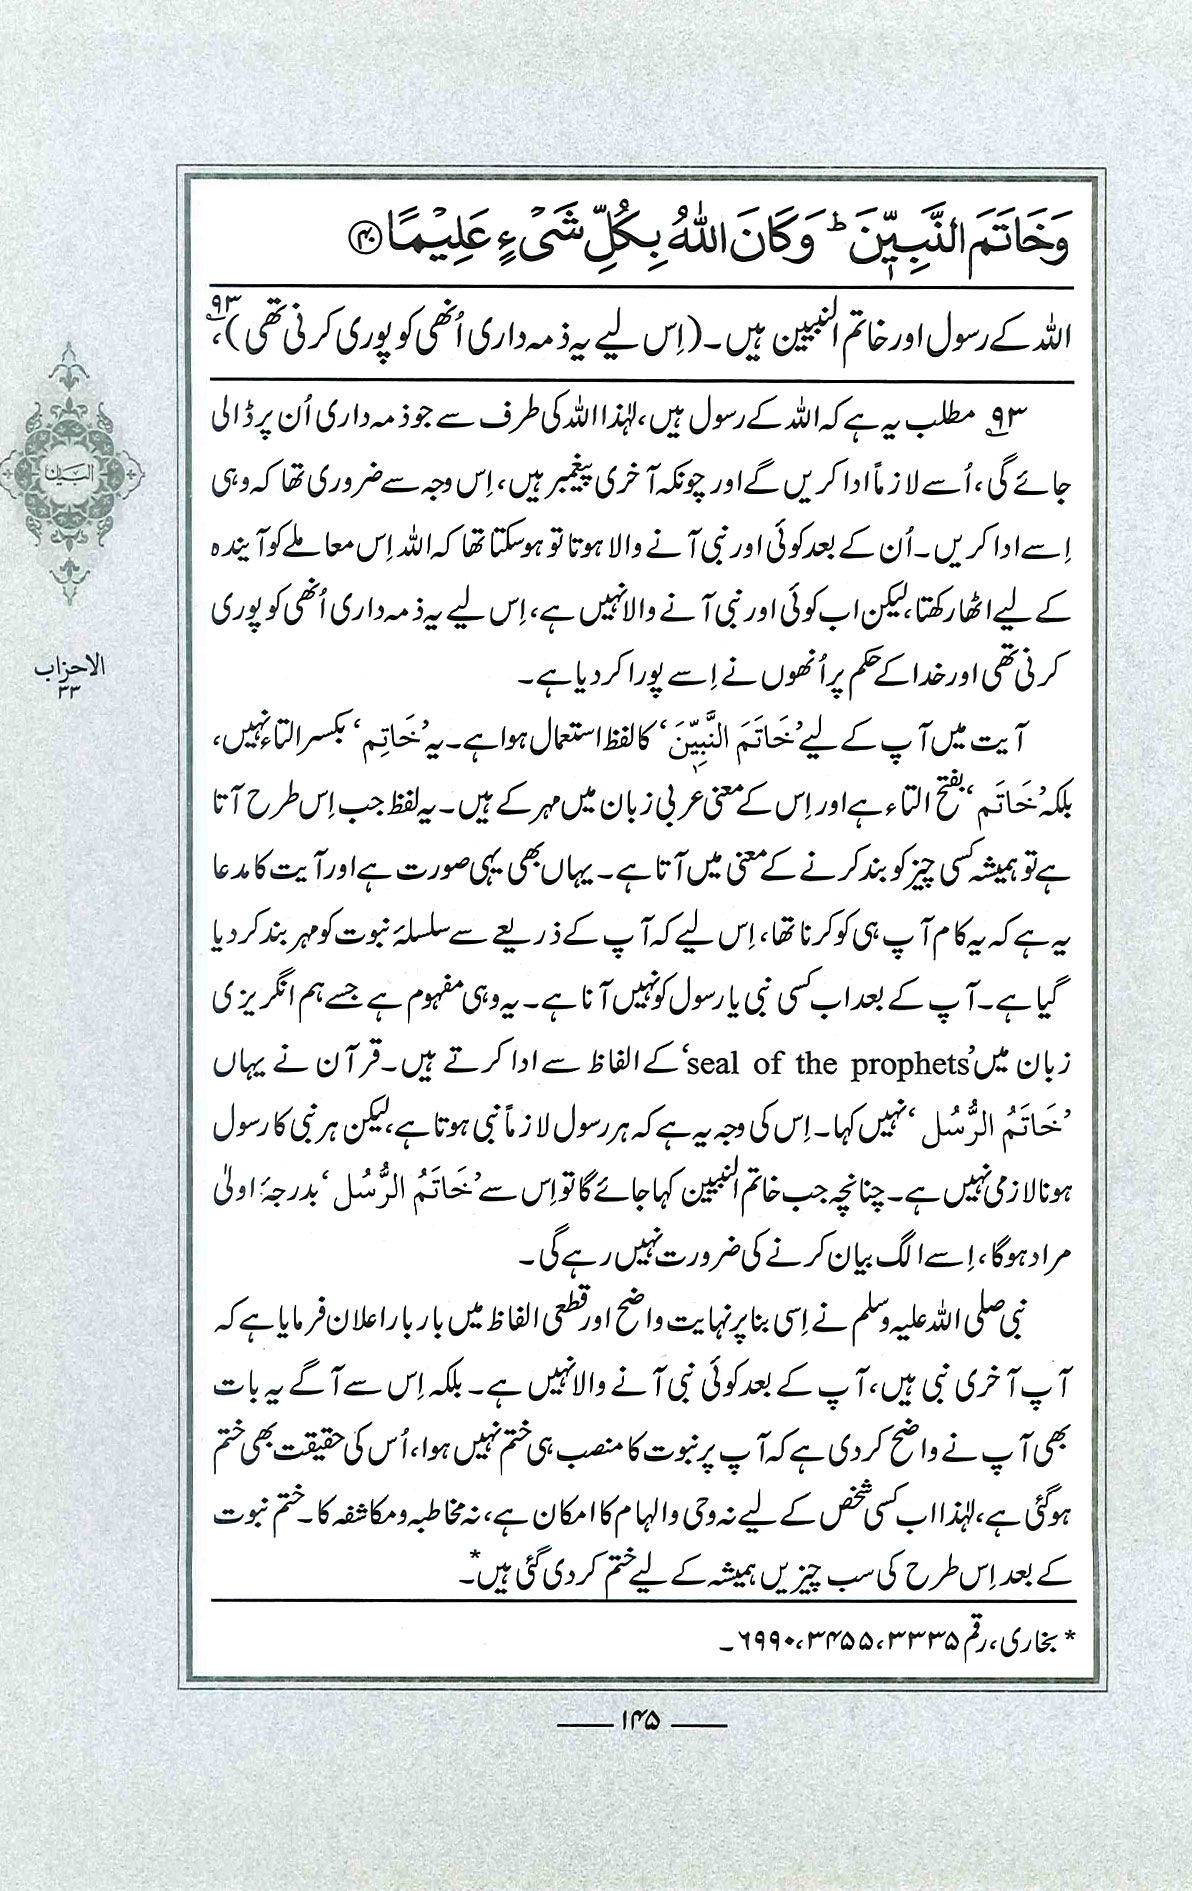 وَخَاتَمَ النَّبِيّٖنَ ؕ وَكَانَ اللّٰهُ بِكُلِّ شَيْءٍ عَلِيْمًا ﴿۴۰﴾
اللہ کے رسول اور خاتم النبیین ہیں۔ (اِس لیے یہ ذمہ داری اُنھی کو پوری کرنی تھی)،۹۳
۹۳ مطلب یہ ہے کہ اللہ کے رسول ہیں، لہٰذا اللہ کی طرف سے جو ذمہ داری اُن پر ڈالی
جائے گی، اُسے لازماً ادا کریں گے اور چونکہ آخری پیغمبر ہیں، اِس وجہ سے ضروری تھا کہ وہی
اِسے ادا کریں۔ اُن کے بعد کوئی اور نبی آنے والا ہوتا تو ہو سکتا تھا کہ اللہ اِس معاملے کو آیندہ
کے لیے اٹھا رکھتا، لیکن اب کوئی اور نبی آنے والا نہیں ہے، اِس لیے یہ ذمہ داری اُنھی کو پوری
کرنی تھی اور خدا کے حکم پر اُنھوں نے اِسے پورا کر دیا ہے۔
آیت میں آپ کے لیے ’خَاتَمَ النَّبِيّٖنَ‘ کا لفظ استعمال ہوا ہے۔ یہ ’خَاتِم‘ بکسر التاء نہیں،
بلکہ ’خَاتَم‘ بفتح التاء ہے اور اِس کے معنی عربی زبان میں مہر کے ہیں۔ یہ لفظ جب اِس طرح آتا
ہے تو ہمیشہ کسی چیز کو بند کرنے کے معنی میں آتا ہے۔ یہاں بھی یہی صورت ہے اور آیت کا مدعا
یہ ہے کہ یہ کام آپ ہی کو کرنا تھا، اِس لیے کہ آپ کے ذریعے سے سلسلۂ نبوت کو مہر بند کر دیا
گیا ہے۔ آپ کے بعد اب کسی نبی یا رسول کو نہیں آنا ہے۔ یہ وہی مفہوم ہے جسے ہم انگریزی
زبان میں ’seal of the prophets‘ کے الفاظ سے ادا کرتے ہیں۔ قرآن نے یہاں
’خَاتَمُ الرُّسُل‘ نہیں کہا۔ اِس کی وجہ یہ ہے کہ ہر رسول لازماً نبی ہوتا ہے، لیکن ہر نبی کا رسول
ہونا لازمی نہیں ہے۔ چنانچہ جب خاتم النبیین کہا جائے گا تو اِس سے ’خَاتَمُ الرُّسُل‘ بدرجۂ اولیٰ
مراد ہوگا، اِسے الگ بیان کرنے کی ضرورت نہیں رہے گی۔
نبی صلی اللہ علیہ وسلم نے اِسی بنا پر نہایت واضح اور قطعی الفاظ میں بار بار اعلان فرمایا ہے کہ
آپ آخری نبی ہیں، آپ کے بعد کوئی نبی آنے والا نہیں ہے۔ بلکہ اِس سے آگے یہ بات
بھی آپ نے واضح کر دی ہے کہ آپ پر نبوت کا منصب ہی ختم نہیں ہوا، اُس کی حقیقت بھی ختم
ہوگئی ہے، لہٰذا اب کسی شخص کے لیے نہ وحی و الہام کا امکان ہے، نہ مخاطبہ و مکاشفہ کا۔ ختم نبوت
کے بعد اِس طرح کی سب چیزیں ہمیشہ کے لیے ختم کر دی گئی ہیں۔*
* بخاری، رقم ۳۳۳۵، ۳۴۵۵، ۶۹۹۰۔
البیان
الاحزاب
۳۳
۱۴۵